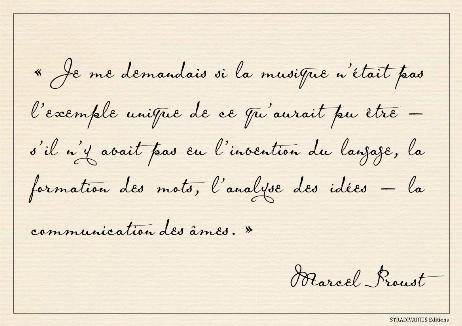 « Je me demandais si la musique n'était pas
l'exemple unique de ce qu'aurait pu être –
s'il n'y avait pas eu l'invention du langage, la
formation des mots, l'analyse des idées – la
communication des âmes. »
Marcel Proust
STRADIVARIUS Editions